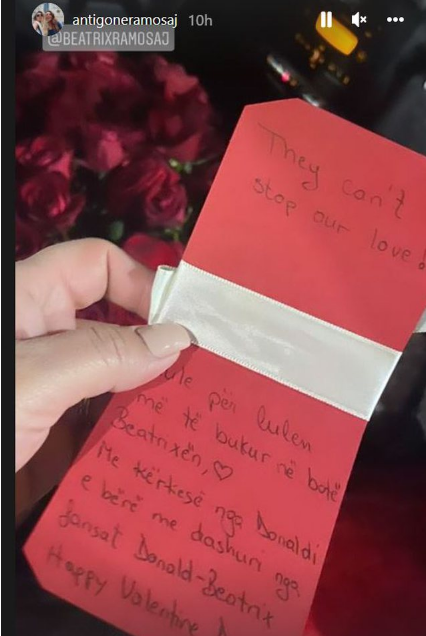 antigoneramosaj 10h
@BEATRIXRAMOSAJ
They can't
stop our love!
për lulen
më të bukur në botë
Beatrixën, ♡
Me kërkesë nga Donaldi
e bërë me dashuri nga
fansat Donald-Beatrix
Happy Valentine